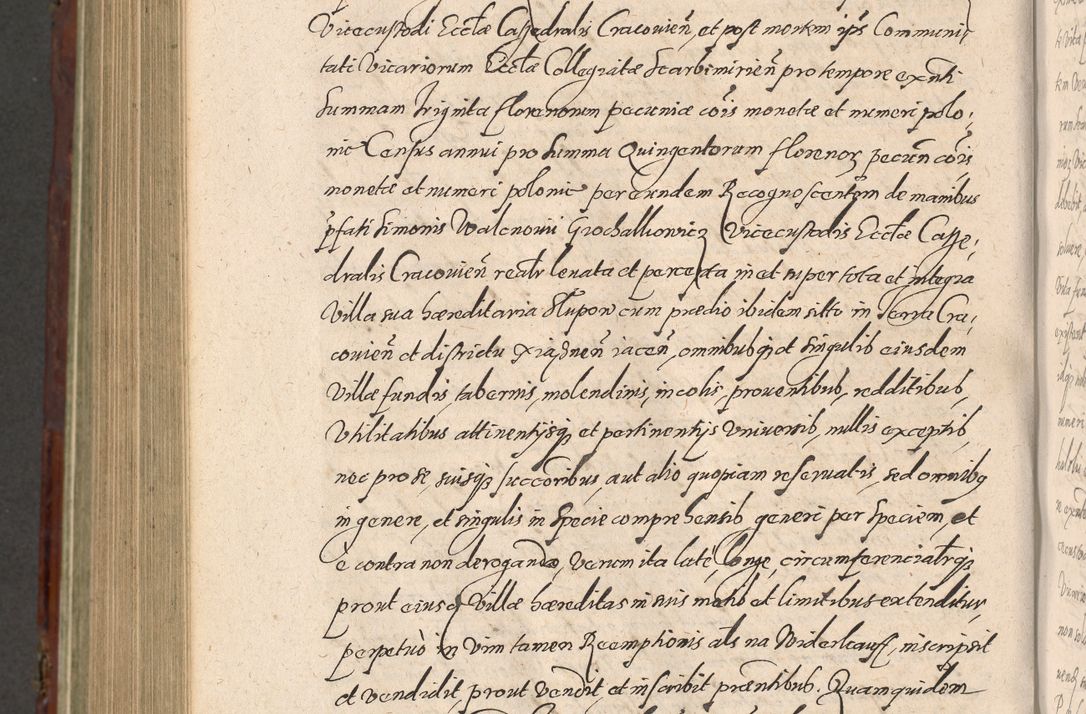 Vicecustodi Eccłæ Cathedralis Cracovień, et post mortem ips Communi
tati Vicariorum Eccłæ Collegiatæ Scarbimirień pro tempore exnti
summam Triginta florenorum pecuniæ cois monetæ et numeri polo:
nic Census annui pro summa Quingentorum floreno pecuń cois
monetæ et numeri polonic per eundem Recognoscentem de manibus
pfati Simonis Walcnovii Grochalkowicz Vicecustodis Eccłæ Cathe:
dralis Cracovień realr levata et percepta in et super tota et integra
Villa sua hæreditaria Słupow cum prædio ibidem sitto in Terra Cra,
covień et districtu Xiązneń iaceń, omnibusq et singulis eiusdem
Villæ fundis, tabernis, molendinis, incolis, proventibus, redditibus,
Vtilitatibus attinentijsq et pertinentijs Vniversis, nullis exceptis,
nec pro se, suisq successoribus, aut alio quopiam reservatis, sed omnibq
in genere, et singulis in specie comprehensis generi per speciem, et
e contra non derogando, Verum ita late, longe circumferencialrq
prout eiusd Villæ hæreditas in suis metis et limitibus extenditur,
perpetuò in Vim tamen Reemptionis als na Widerkauff, inscripsit
et vendidit, prout Vendit et inscribit præntibus. Quamquidem